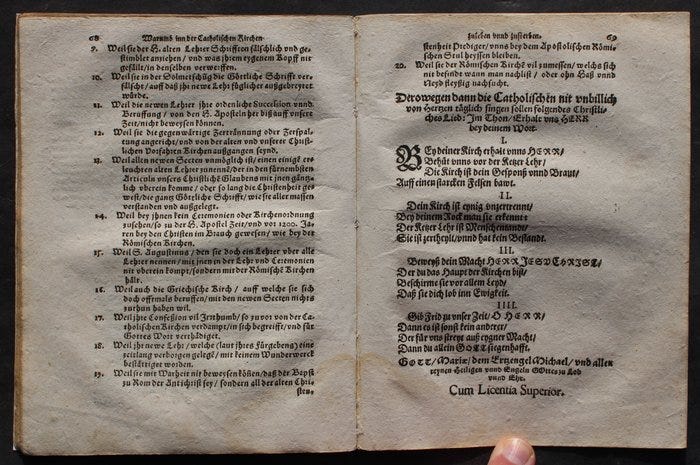 68 Warumb inn der Catholischen Kirchen
9. Weil sie der H. alten Lehrer Schrifften fälschlich vnd ge-
stimbler anziehen / vnd was jhrem eygenem Kopff nit
gefällt / in denselben verwerffen.
10. Weil sie in der Dolmetschūg die Göttliche Schrifft ver-
fälscht / auff daß jhr newe Lehr füglicher außgebreytet
würde.
11. Weil die newen Lehrer jhre ordenliche Succession vnnd
Beruffung / von den H. Aposteln her biß auff vnsere
Zeit / nicht beweysen können.
12. Weil sie die gegenwärtige Zerträunung oder Zerspal-
tung angericht / vnd von der alten vnd vnserer Christ-
lichen Vorfahren Kirchen außgangen seynd.
13. Weil allen newen Secten vnmöglich ist / einen einigē er-
leuchten alten Lehrer zunennē / der in den fürnembsten
Articuln vnsers Christliche Glaubens mit jnen gäntz-
lich vberein komme / oder so lang die Christenheit ge-
west / die gantz Göttliche Schrifft / wie sie aller massen
verstanden vnd außgelegt.
14. Weil bey jhnen kein Ceremonien oder Kirchenordnung
zusehen / so zu der H. Apostel Zeit / vnd vor 1200. Ja-
ren bey den Christen im Brauch gewesen / wie bey der
Römischen Kirchen.
15. Weil S. Augustinus / den sie doch ein Lehrer vber alle
Lehrer nennen / mit jnen in der Lehr vnd Ceremonien
nit vberein kompt / sondern mit der Römische Kirchen
hält.
16. Weil auch die Griechisch Kirch / auff welche sie sich
doch offtmals beruffen / mit den newen Secten nichts
zuthun haben wil.
17. Weil jhre Confession vil Jrrthumb / so zuvor von der Ca-
tholischen Kirchen verdampt / in sich begreifft / vnd für
Gottes Wort verthädiget.
18. Weil jhr newe Lehr / welche (laut jhres Fürgebens) eine
zeitlang verborgen gelegē / mit keinem Wunderwerck
bestättiget worden.
19. Weil sie mit Warheit nit beweysen können / daß der Bapst
zu Rom der Antichrist sey / sondern all der alten Chri-
sten-
zuleben vnnd zusterben. 69
stenheit Prediger / vnns bey dem Apostolischen Römi-
schen Stul heyssen bleiben.
20. Weil sie der Römischen Kirchē vil zumessen / welchs sich
nit befindt wann man nachlist / oder ohn Haß vnnd
Neyd fleyssig nachsucht.
Derowegen dann die Catholischēn nit vnbillich
von Hertzen täglich singen sollen folgendes Christli-
ches Lied: Jm Thon / Erhalt vns HERR
bey deinem Wort.
I.
BEy deiner Kirch erhalt vnns HERR /
Behüt vnns vor der Ketzer Lehr /
Die Kirch ist dein Gesponß vnnd Braut /
Auff einen starcken Felsen bawt.
II.
Dein Kirch ist eynig vnzerrennt /
Bey deinem Rock man sie erkennt:
Der Ketzer Lehr ist Menschentandt /
Sie ist zertheylt / vnnd hat kein Bestandt.
III.
Beweyß dein Macht HERR JESV CHRIST /
Der du das Haupt der Kirchen bist /
Beschirme sie vor allem Leyd /
Daß sie dich lob inn Ewigkeit.
IIII.
Gib Frid zu vnser Zeit / O HERR /
Dann es ist sonst kein anderer /
Der für vns streyt auß eygner Macht /
Dann du allein GOTT sieghenhafft.
GOTT / Mariæ / dem Ertzengel Michael / vnd allen
reynen Heiligen vnnd Engeln GOttes zu Lob
vnnd Ehr.
Cum Licentia Superior.